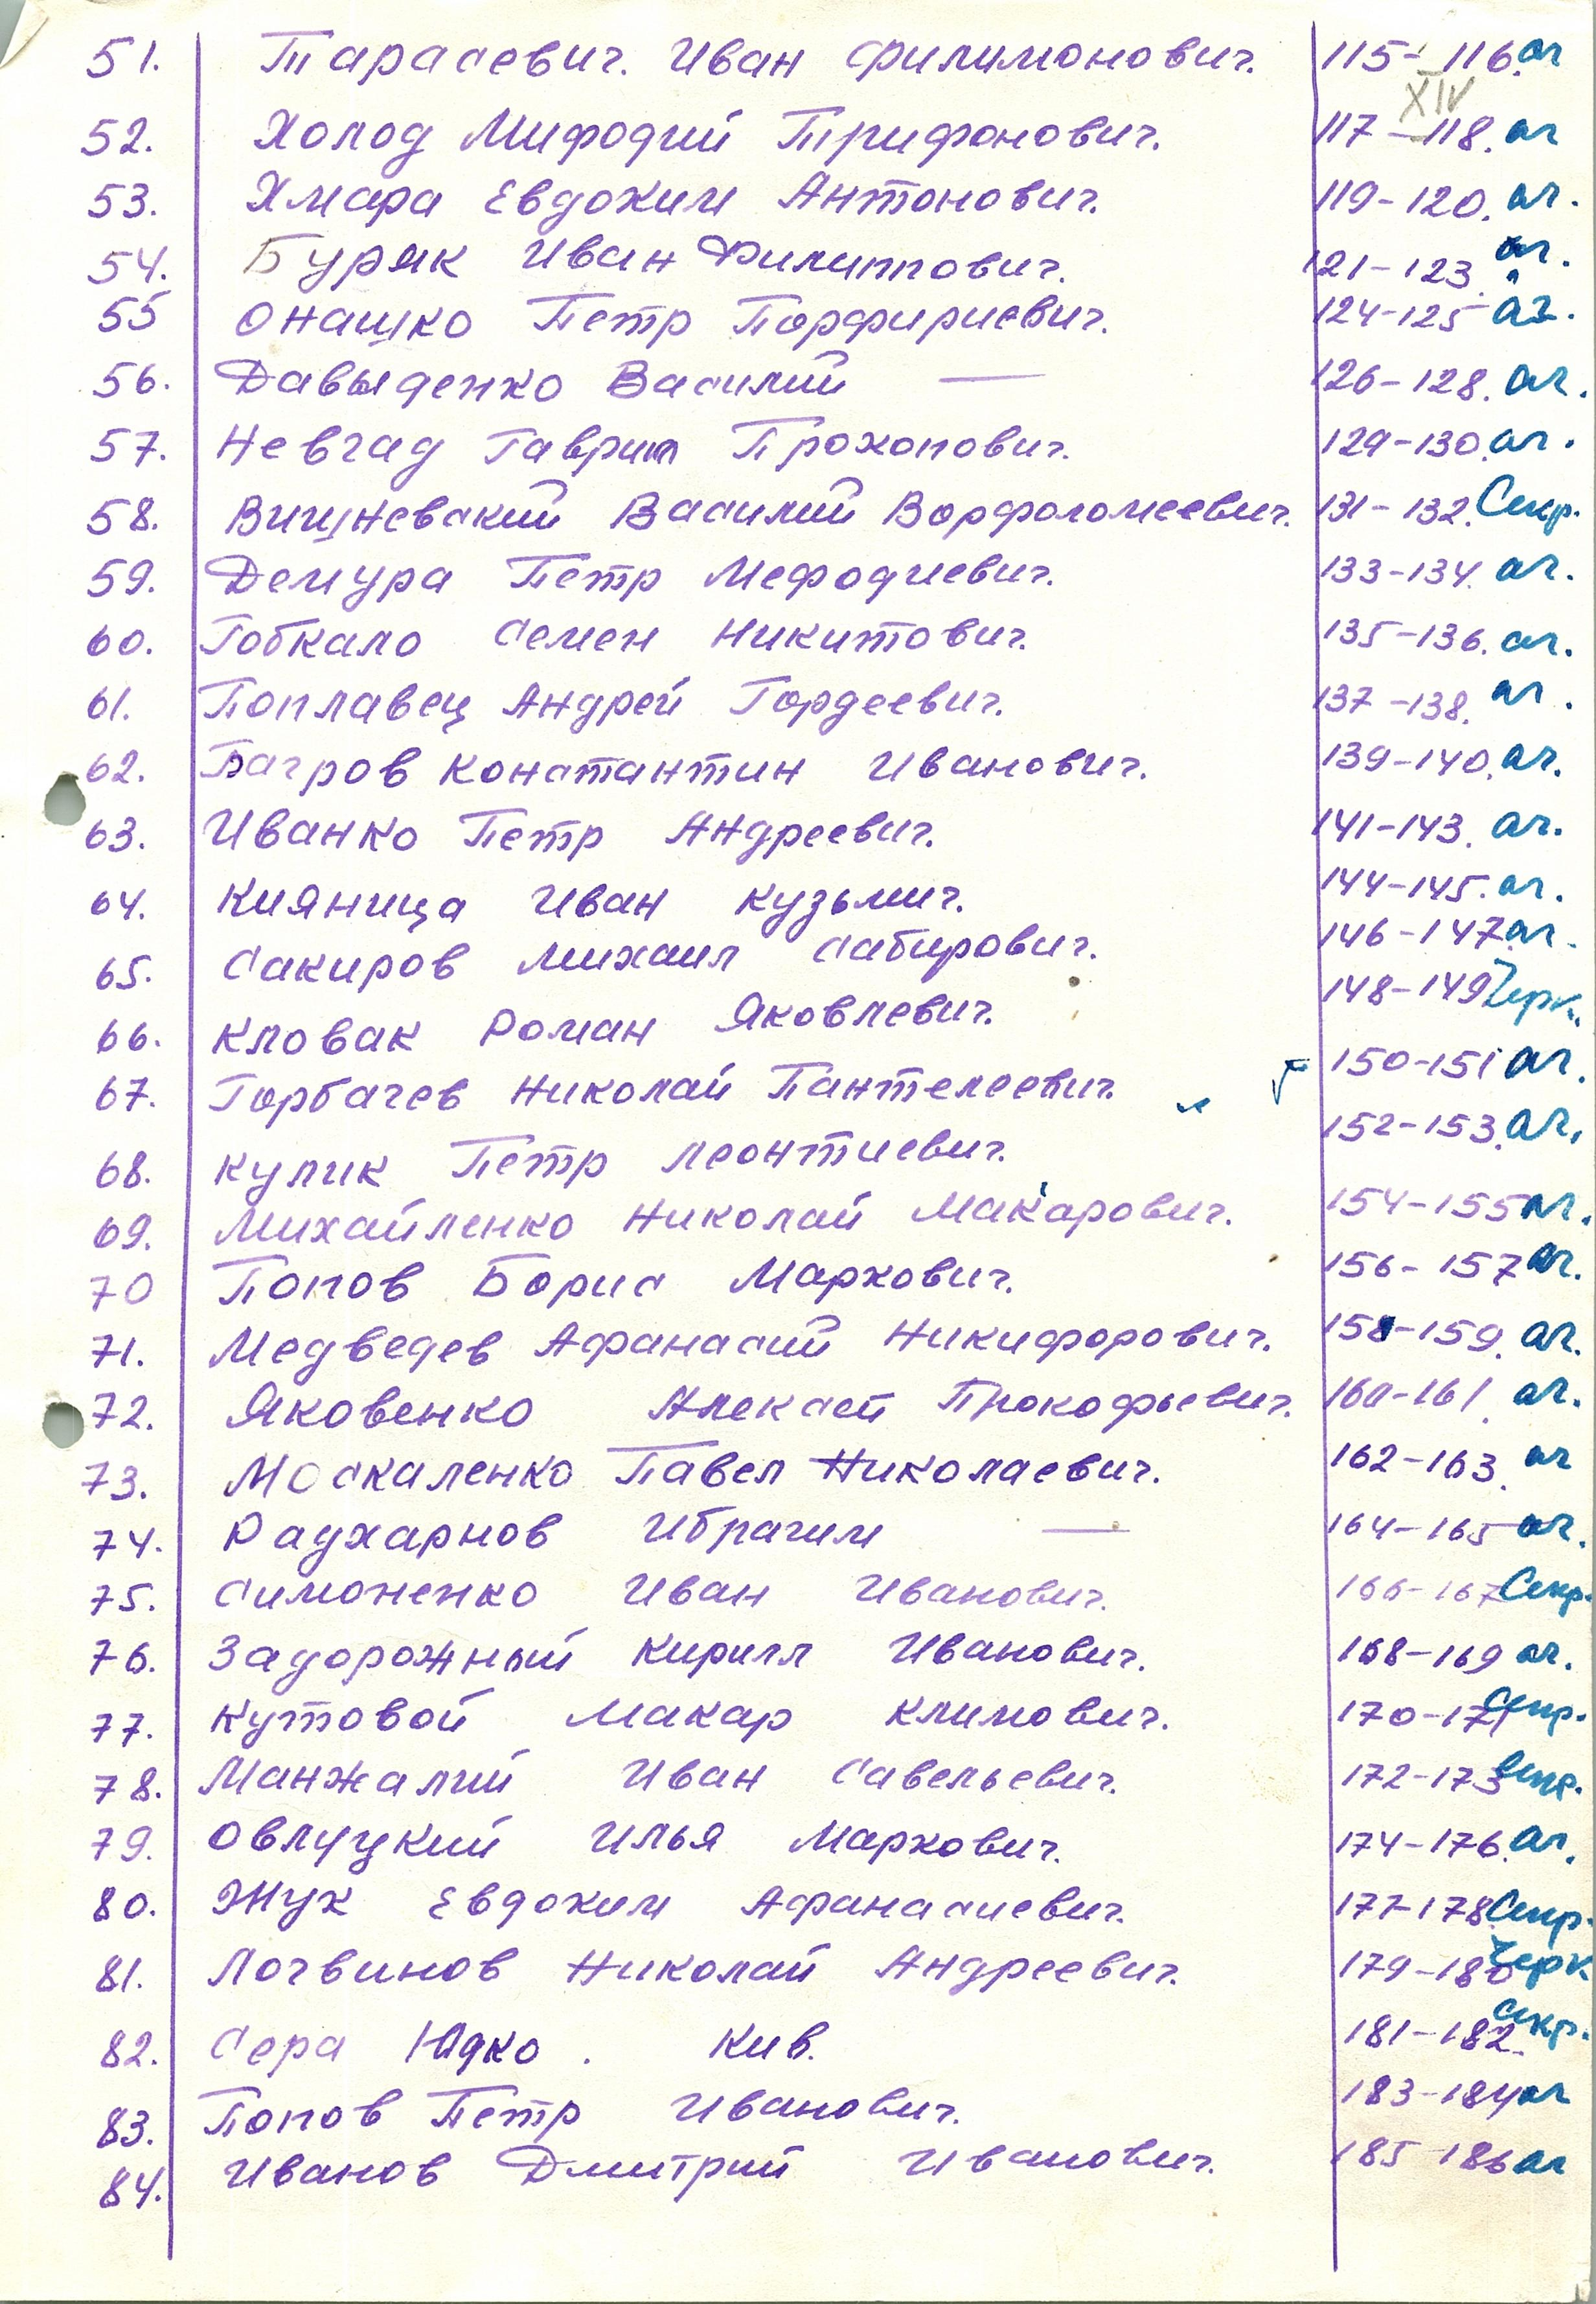 51. Тарасевич. Иван Филимонович. 115-116. аг
XIV
52. Холод Мифодий Трифонович. 117-118. аг
53. Хмара Евдоким Антонович. 119-120. аг.
54. Буряк Иван Филиппович. 121-123. аг.
55 Онашко Петр Порфириевич. 124-125 аг.
56. Давыденко Василий — 126-128. аг.
57. Невгад Гаврил Прокопович. 129-130. аг.
58. Вишневский Василий Ворфоломеевич. 131-132. Секр.
59. Демура Петр Мефодиевич. 133-134. аг.
60. Гобкало Семен Никитович. 135-136. аг.
61. Поплавец Андрей Гордеевич. 137-138. аг.
62. Багров Константин Иванович. 139-140. аг.
63. Иванко Петр Андреевич. 141-143. аг.
64. Кияница Иван Кузьмич. 144-145. аг.
65. Сакиров Михаил Сабирович. 146-147. аг.
66. Кловак Роман Яковлевич. 148-149 Черк.
67. Горбачев Николай Пантелеевич. 150-151 аг.
68. Кулик Петр Леонтиевич. 152-153. аг.
69. Михайленко Николай Макарович. 154-155 аг.
70 Попов Борис Маркович. 156-157 аг.
71. Медведев Афанасий Никифорович. 158-159. аг.
72. Яковенко Алексей Прокофьевич. 160-161. аг.
73. Москаленко Павел Николаевич. 162-163. аг
74. Раухарнов Ибрагим — 164-165 аг.
75. Симоненко Иван Иванович. 166-167 Секр.
76. Задорожный Кирилл Иванович. 168-169 аг.
77. Кутовой Макар Климович. 170-171 Секр.
78. Манжалий Иван Савельевич. 172-173 Секр.
79. Овлуцкий Илья Маркович. 174-176. аг.
80. Жук Евдоким Афанасиевич. 177-178. Секр.
81. Логвинов Николай Андреевич. 179-180 Черк
82. Сера Юдко. Кив. 181-182. Секр.
83. Попов Петр Иванович. 183-184 аг
84. Иванов Дмитрий Иванович. 185-186 аг